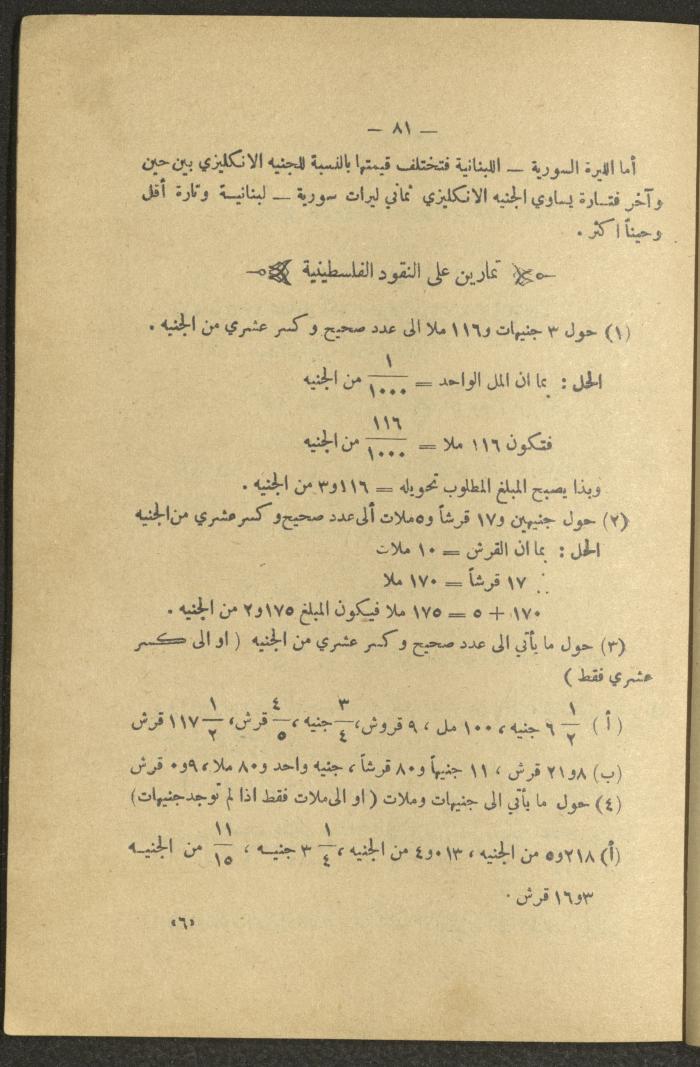 — ٨١ —
أما الليرة السورية — اللبنانية فتختلف قيمتها بالنسبة للجنيه الانكليزي بين حين
وآخر فتارة يساوي الجنيه الانكليزي ثماني ليرات سورية — لبنانية وتارة أقل
وحيناً اكثر .
تمارين على النقود الفلسطينية
(١) حول ٣ جنيهات و١١٦ ملا الى عدد صحيح وكسر عشري من الجنيه .
الحل : بما ان المل الواحد = ١/١٠٠٠ من الجنيه
فتكون ١١٦ ملا = ١١٦/١٠٠٠ من الجنيه
وبذا يصبح المبلغ المطلوب تحويله = ١١٦و٣ من الجنيه .
(٢) حول جنيهين و١٧ قرشاً و٥ملات ألى عدد صحيح وكسر عشري من الجنيه
الحل : بما ان القرش = ١٠ ملات
∴ ١٧ قرشاً = ١٧٠ ملا
١٧٠ + ٥ = ١٧٥ ملا فيكون المبلغ ١٧٥و٢ من الجنيه .
(٣) حول ما يأتي الى عدد صحيح وكسر عشري من الجنيه ( او الى كسر
عشري فقط )
( أ ) ١/٢ ٦ جنيه ، ١٠٠ مل ، ٩ قروش، ٣/٤ جنيه ، ٤/٥ قرش، ١/٢ ١١٧ قرش
(ب) ٨و٢١ قرش ، ١١ جنيهاً و٨٠ قرشاً ، جنيه واحد و٨٠ ملا ، ٩و٠ قرش
(٤) حول ما يأتي الى جنيهات وملات ( او الى ملات فقط اذا لم توجد جنيهات)
(أ) ٢١٨و٥ من الجنيه ، ٠١٣و٤ من الجنيه ، ١/٤ ٣ جنيه ، ١١/١٥ من الجنيه
٣و١٦ قرش .
«٦»